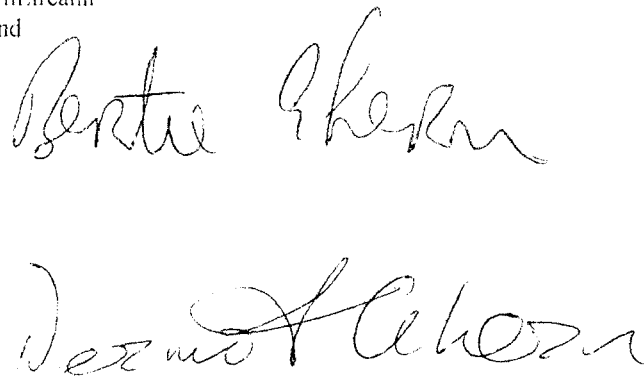 nd
Bertie Ahern
Dermot Ahern